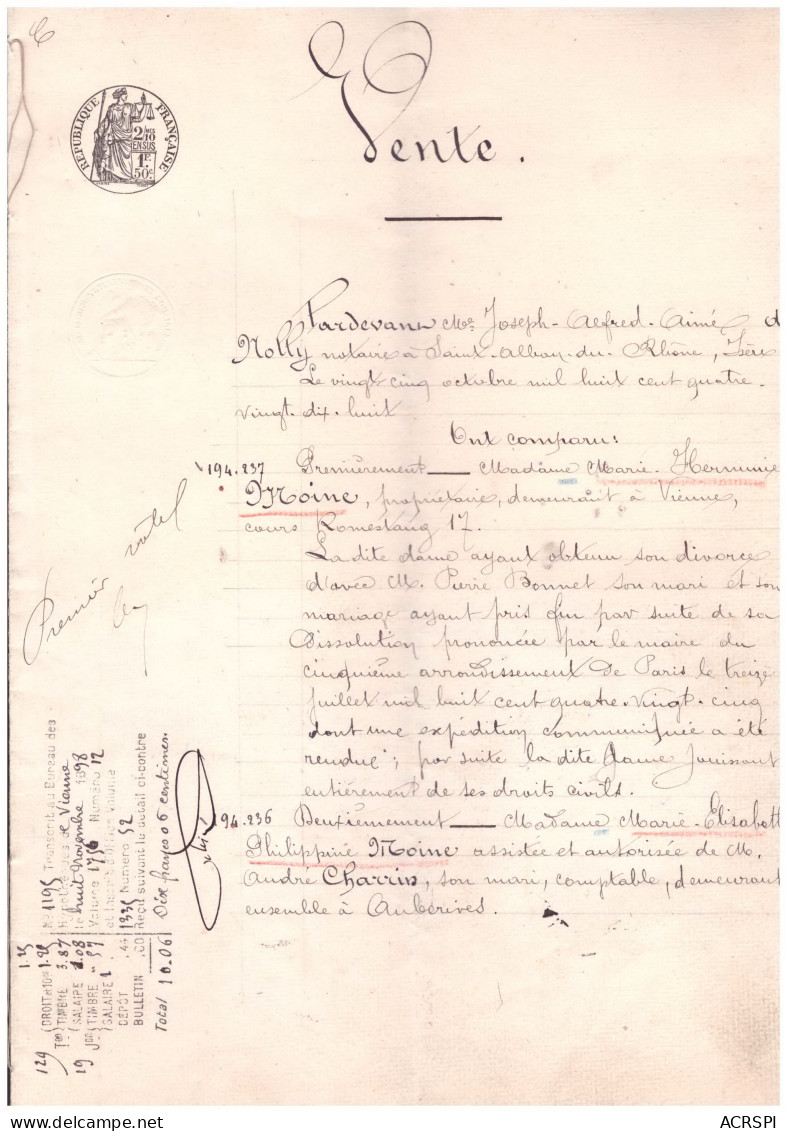 RÉPUBLIQUE FRANÇAISE
2/10 MES
EN SUS
1F.
50c
Vente.
Pardevant Me Joseph-Alfred-Aimé d
Nolly notaire à Saint-Alban-du-Rhône, Isère
Le vingt cinq octobre mil huit cent quatre-
vingt-dix-huit
Ont comparu:
194.237 Premièrement — Madame Marie-Herminie
Moine, propriétaire, demeurant à Vienne,
cours Romestang 17.
La dite dame ayant obtenu son divorce
d'avec M. Pierre Bonnet son mari et son
mariage ayant pris fin par suite de sa
Dissolution prononcée par le maire du
cinquième arrondissement de Paris le treize
juillet mil huit cent quatre-vingt-cinq
dont une expédition communiquée a été
rendue; par suite la dite dame jouissant
entièrement de ses droits civils.
194.236 Deuxièmement — Madame Marie-Elisabeth
Philippine Moine assistée et autorisée de M.
André Charrin, son mari, comptable, demeurant
ensemble à Auberives.
Premier rôle
No 1195 Transcrit au Bureau des
Hypothèques de Vienne
le huit Novembre 1898
Volume 1756 Numéro 12
et inscrit d'office Volume
1335 Numéro 52
Reçu suivant le détail ci-contre
Dix francs 06 centimes.
1.25
DROIT et 10es 1.20
TIMBRE 3.87
SALAIRE 1.08
TIMBRE 37
SALAIRE 1
DÉPÔT .44
BULLETIN .00
Total 10.06
129
19
ACRSPI